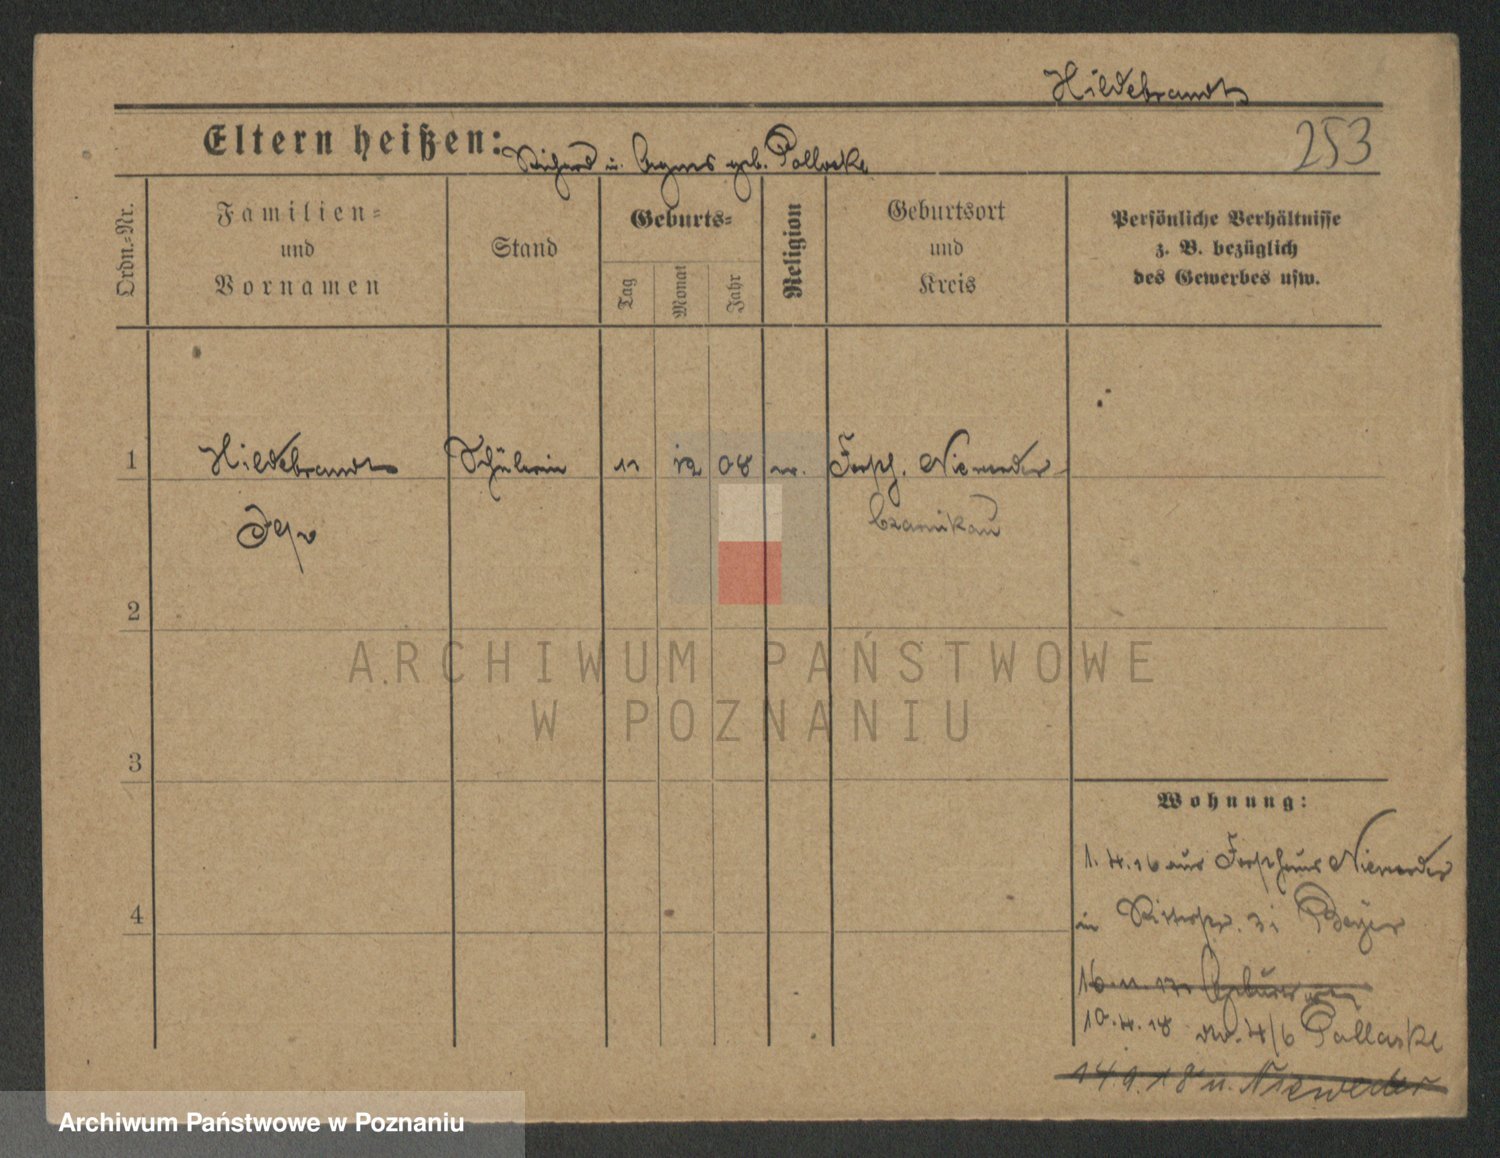 Hildebrandt
Eltern heißen: Richard u. Agnes geb. Pollaske
253
Ordn.-Nr.
Familien-
und
Vornamen
Stand
Geburts-
Tag
Monat
Jahr
Religion
Geburtsort
und
Kreis
Persönliche Verhältnisse
z. B. bezüglich
des Gewerbes usw.
1
Hildebrandt
Schülerin
11
12
08
Forsth. Niewerder
Ilse
Czarnikau
2
3
4
Wohnung:
1.4.16 aus Forsthaus Niewerder
in Ritterstr. 31 Beyer
16.11.17
10.4.18 4/6 Pollaske
14.9.18 n. Niewerder
ARCHIWUM PAŃSTWOWE
W POZNANIU
Archiwum Państwowe w Poznaniu